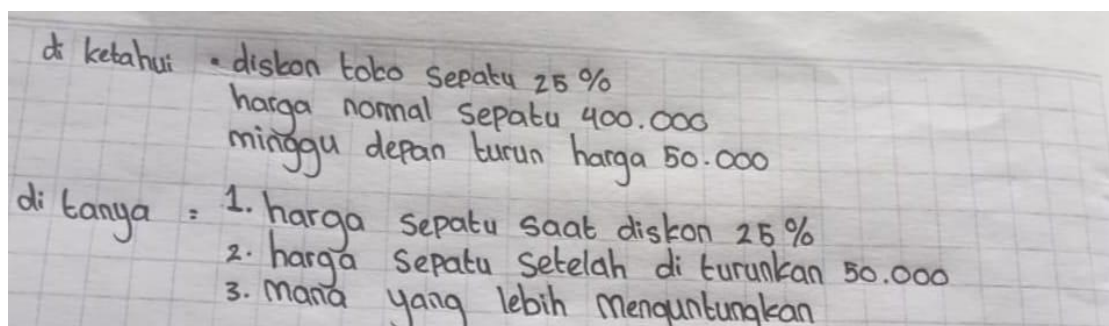 di ketahui • diskon toko sepatu 25 %
harga normal sepatu 400.000
minggu depan turun harga 50.000
di tanya = 1. harga sepatu saat diskon 25 %
2. harga sepatu setelah di turunkan 50.000
3. mana yang lebih menguntungkan